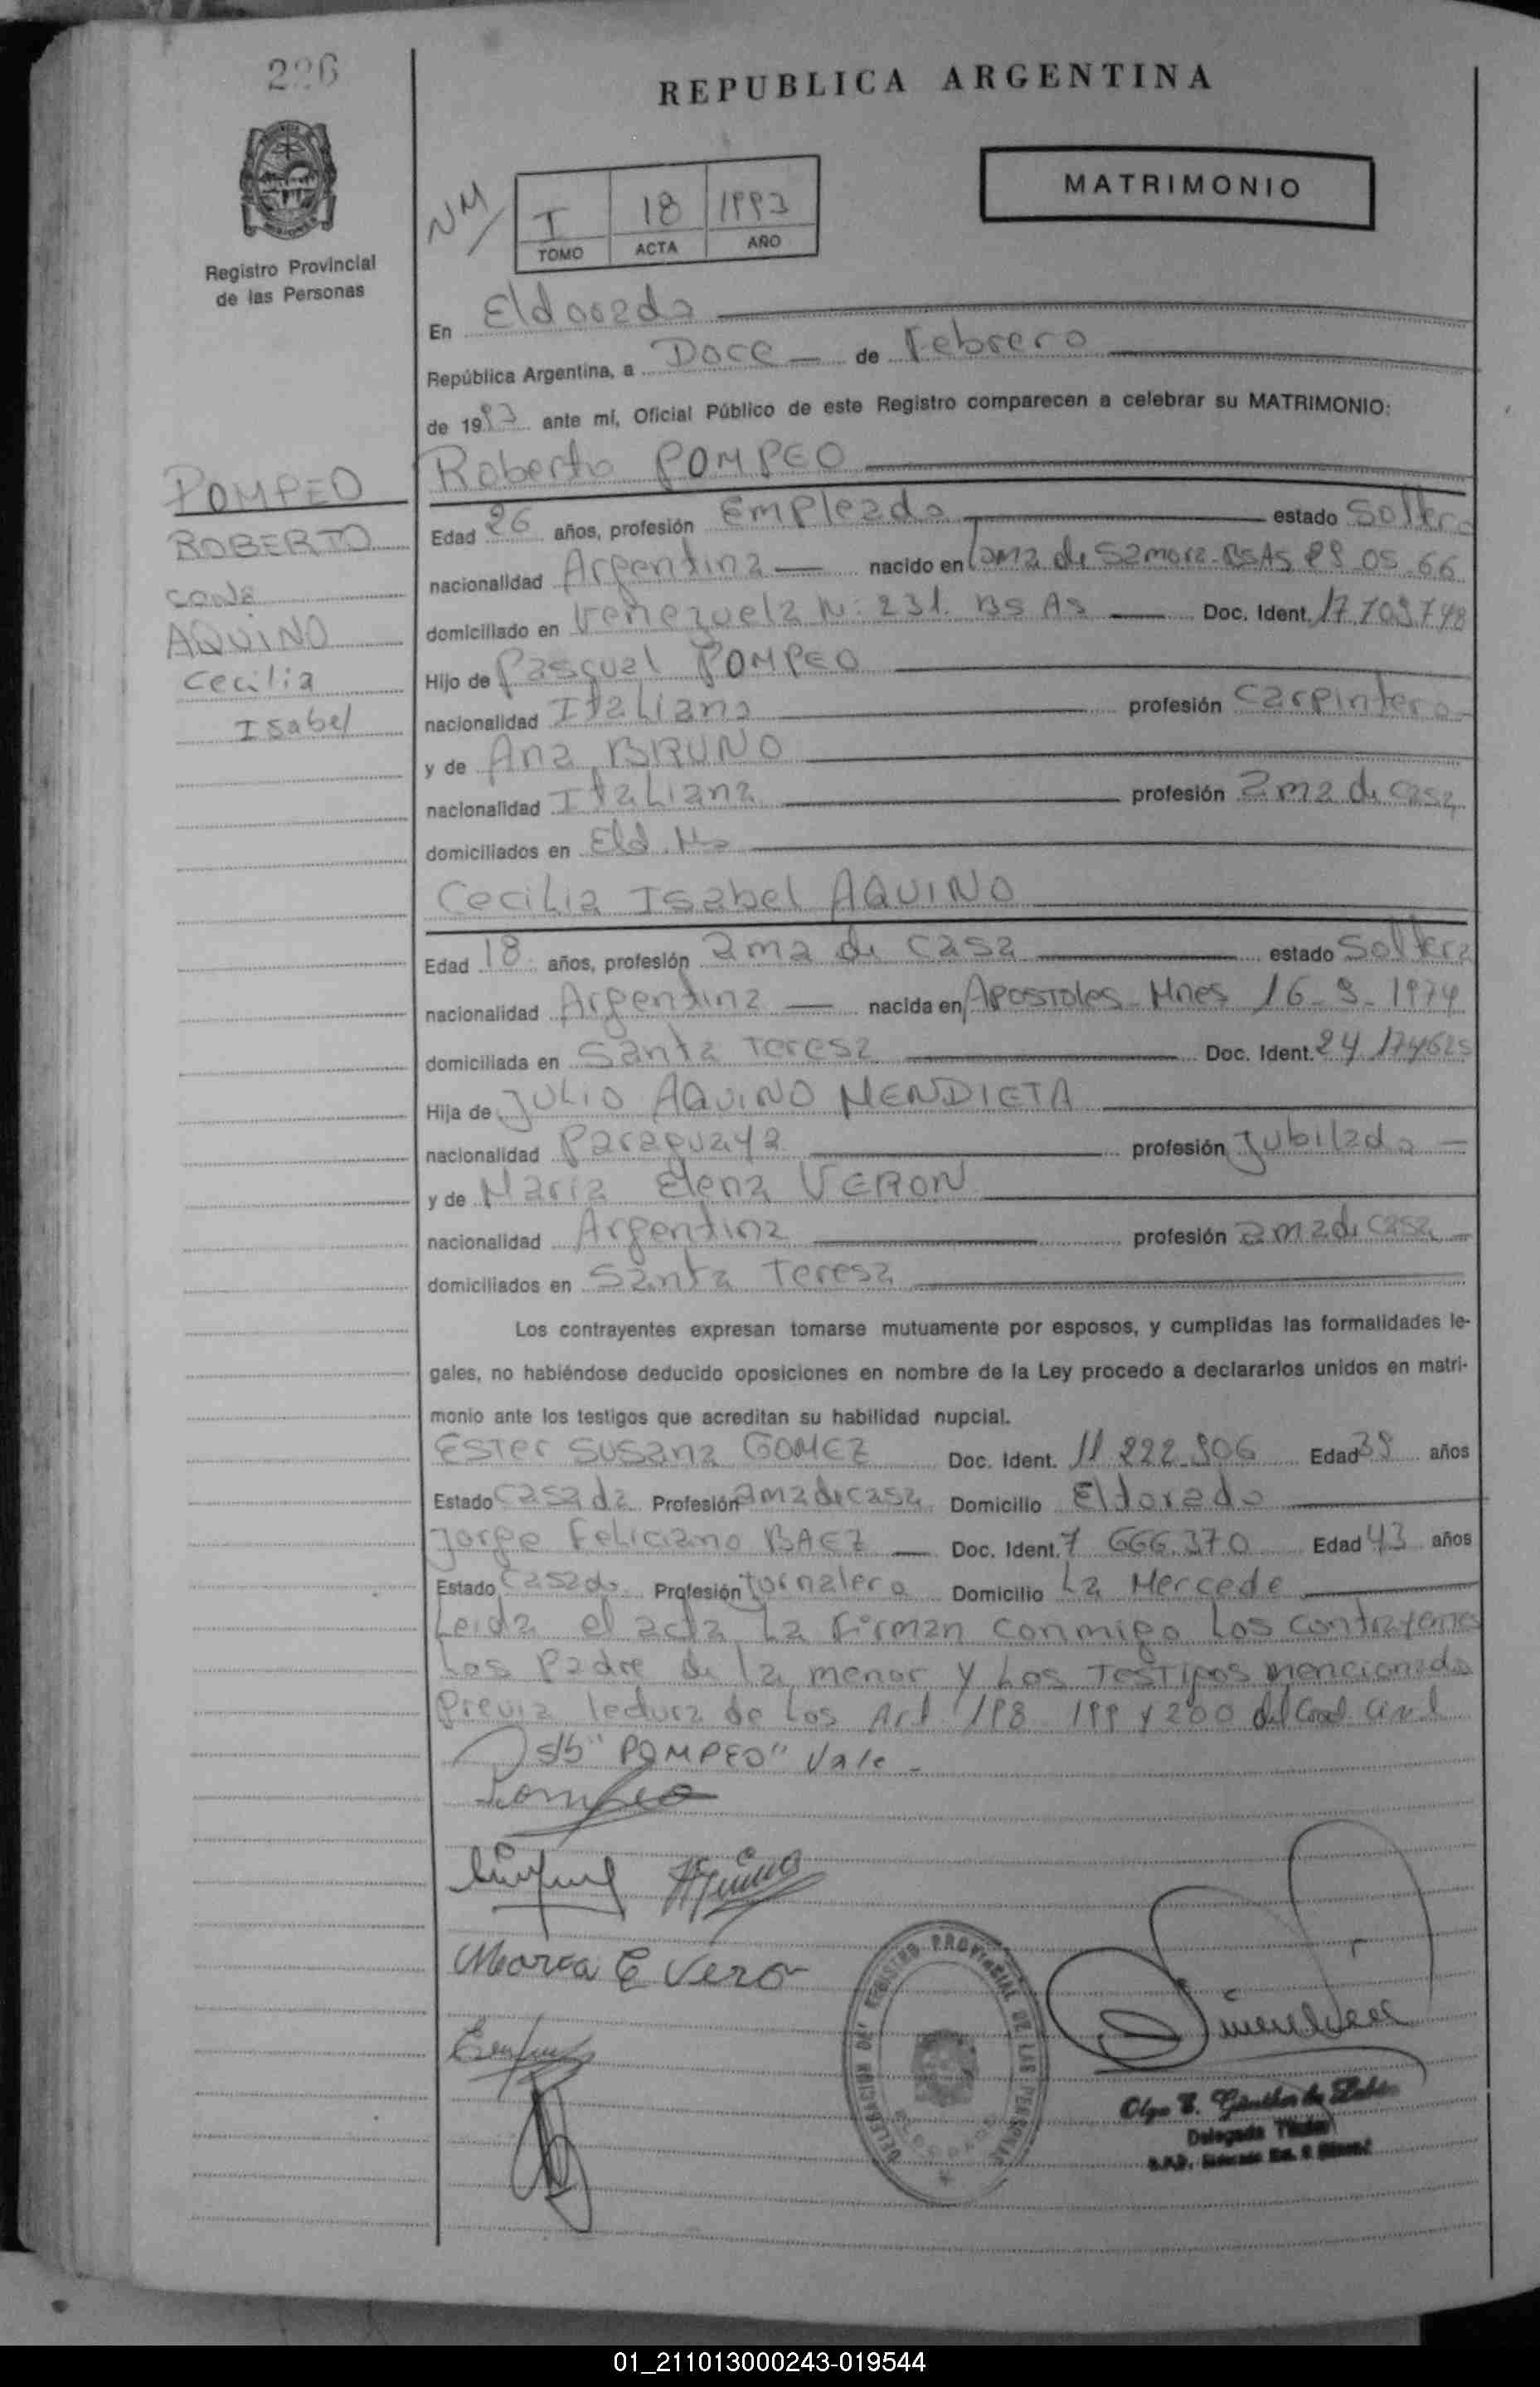 226
REPUBLICA ARGENTINA
MATRIMONIO
NM
I 18 1993
TOMO ACTA AÑO
Registro Provincial
de las Personas
En Eldorado
República Argentina, a Doce de Febrero
de 1993 ante mí, Oficial Público de este Registro comparecen a celebrar su MATRIMONIO:
POMPEO
ROBERTO
con
AQUINO
Cecilia
Isabel
Roberto POMPEO
Edad 26 años, profesión Empleado estado Soltero
nacionalidad Argentina nacido en Loma de Samora-BsAs 29 05 66
domiciliado en Venezuela N: 231. Bs As Doc. Ident. 17.709748
Hijo de Pascual POMPEO
nacionalidad Italiano profesión Carpintero
y de Ana BRUNO
nacionalidad Italiana profesión ama de casa
domiciliados en Eld. Ms
Cecilia Isabel AQUINO
Edad 18 años, profesión ama de casa estado Soltera
nacionalidad Argentina nacida en Apostoles-Mnes 16-9-1974
domiciliada en Santa Teresa Doc. Ident. 24 174625
Hija de JULIO AQUINO MENDIETA
nacionalidad Paraguaya profesión Jubilado
y de Maria Elena VERON
nacionalidad Argentina profesión ama de casa
domiciliados en Santa Teresa
Los contrayentes expresan tomarse mutuamente por esposos, y cumplidas las formalidades le-
gales, no habiéndose deducido oposiciones en nombre de la Ley procedo a declararlos unidos en matri-
monio ante los testigos que acreditan su habilidad nupcial.
Ester Susana GOMEZ Doc. Ident. 11.222.906 Edad 39 años
Estado Casada Profesión ama de casa Domicilio Eldorado
Jorge Feliciano BAEZ Doc. Ident. 7 666.370 Edad 43 años
Estado Casado Profesión Jornalero Domicilio La Mercede
Leida el acta La Firman conmigo Los contrayentes
Los Padre de la menor y Los Testigos mencionado
Previa lectura de Los Art 198 199 y 200 del Cod Civil
s/b "POMPEO" Vale
Pompeo
Aquino
Maria E Vero
DELEGACION DEL REGISTRO PROVINCIAL DE LAS PERSONAS
ELDORADO
Olga E. Günther de
Delegada Titular
01_211013000243-019544